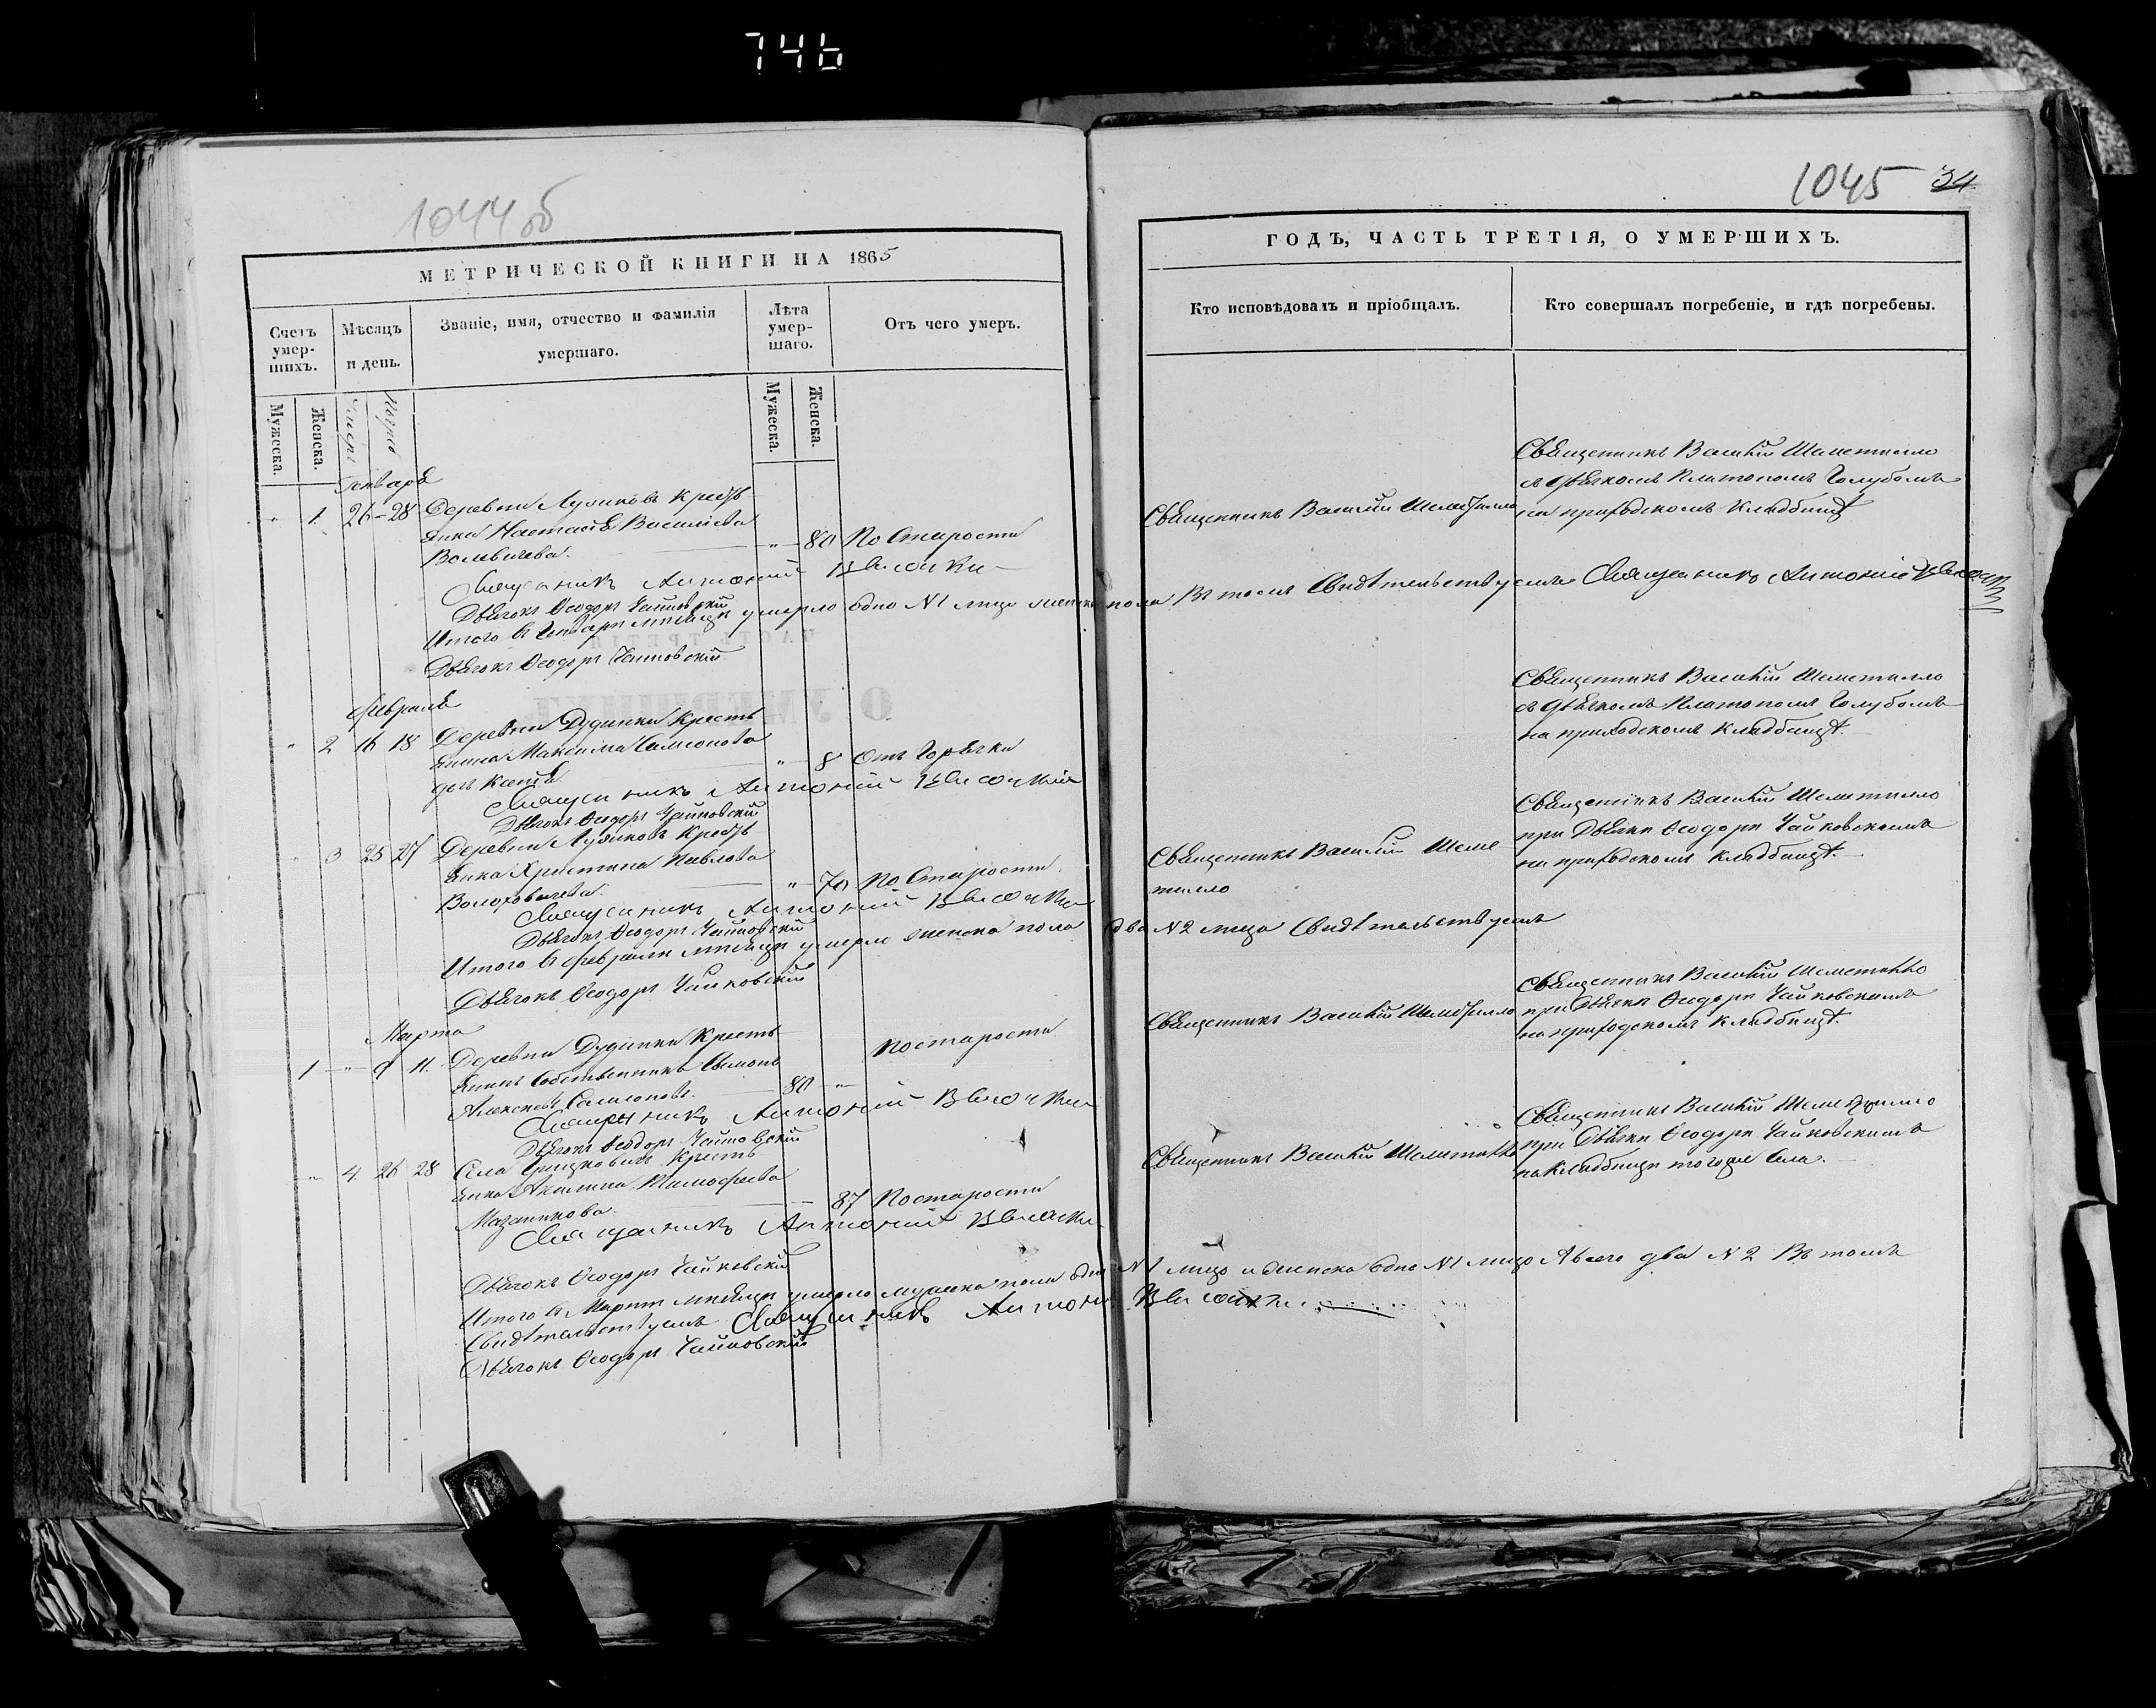 746
1044 об
МЕТРИЧЕСКОЙ КНИГИ НА 1865
Счетъ умер-шихъ.
Мѣсяцъ и день.
Званіе, имя, отчество и фамилія умершаго.
Лѣта умер-шаго.
Отъ чего умеръ.
Мужеска.
Женска.
Мужеска.
Женска.
Генваря
" 1. 26-28 Деревни Крестья
янка Настасія Васильева
" 80 По Старости
Священникъ Антоній
Дьячокъ Ѳеодоръ Чайковскій
Итого въ Генварѣ мѣсяцѣ умерло одно №1 лицо женска пола Въ томъ Свидѣтельствуемъ Священникъ Антоній
Дьячокъ Ѳеодоръ Чайковскій
Февраля
" 2 16 18 Деревни Дудинки Кресть
янина Максима Самсонова
дочь
" 8 Отъ Горячки
Священникъ Антоній
Дьячокъ Ѳеодоръ Чайковскій
" 3 25 27 Деревни Кресть
янка Христина Павлова
" 70 По Старости
Священникъ Антоній
Дьячокъ Ѳеодоръ Чайковскій
Итого въ Февралѣ мѣсяцѣ умерло женска пола два №2 лица Свидѣтельствуемъ
Дьячокъ Ѳеодоръ Чайковскій
Марта
1 " 9 11. Деревни Дудинки Кресть
янинъ Собственникъ Симонъ
Алексѣевъ Самсоновъ.
80 " По старости
Священникъ Антоній
Дьячокъ Ѳеодоръ Чайковскій
" 4. 26 28 Села Кресть
янка Акилина Тимофеева
87 По старости
Священникъ Антоній
Дьячокъ Ѳеодоръ Чайковскій
Итого въ Мартѣ мѣсяцѣ умерло мужска пола одно №1 лицо и женска одно №1 лицо А всего два №2 Въ томъ
Свидѣтельствуемъ Священникъ Антоній
Дьячокъ Ѳеодоръ Чайковскій
1045 34
ГОДЪ, ЧАСТЬ ТРЕТІЯ, О УМЕРШИХЪ.
Кто исповѣдовалъ и пріобщалъ.
Кто совершалъ погребеніе, и гдѣ погребены.
Священникъ Василій Шеметилло
Священникъ Василій Шеметилло
съ дьячкомъ Платономъ Голубомъ
на приходскомъ Кладбищѣ
Священникъ Василій Шеметилло
съ дьячкомъ Платономъ Голубомъ
на приходскомъ Кладбищѣ.
Священникъ Василій Шеме
тилло
Священникъ Василій Шеметилло
при Дьячкѣ Ѳеодорѣ Чайковскимъ
на приходскомъ кладбищѣ.
Священникъ Василій Шеметилло
Священникъ Василій Шеметилло
при Дьячкѣ Ѳеодорѣ Чайковскимъ
на приходскомъ кладбищѣ.
Священникъ Василій Шеметилло
Священникъ Василій Шеметилло
при Дьячкѣ Ѳеодорѣ Чайковскимъ
на кладбищѣ тогоже Села.